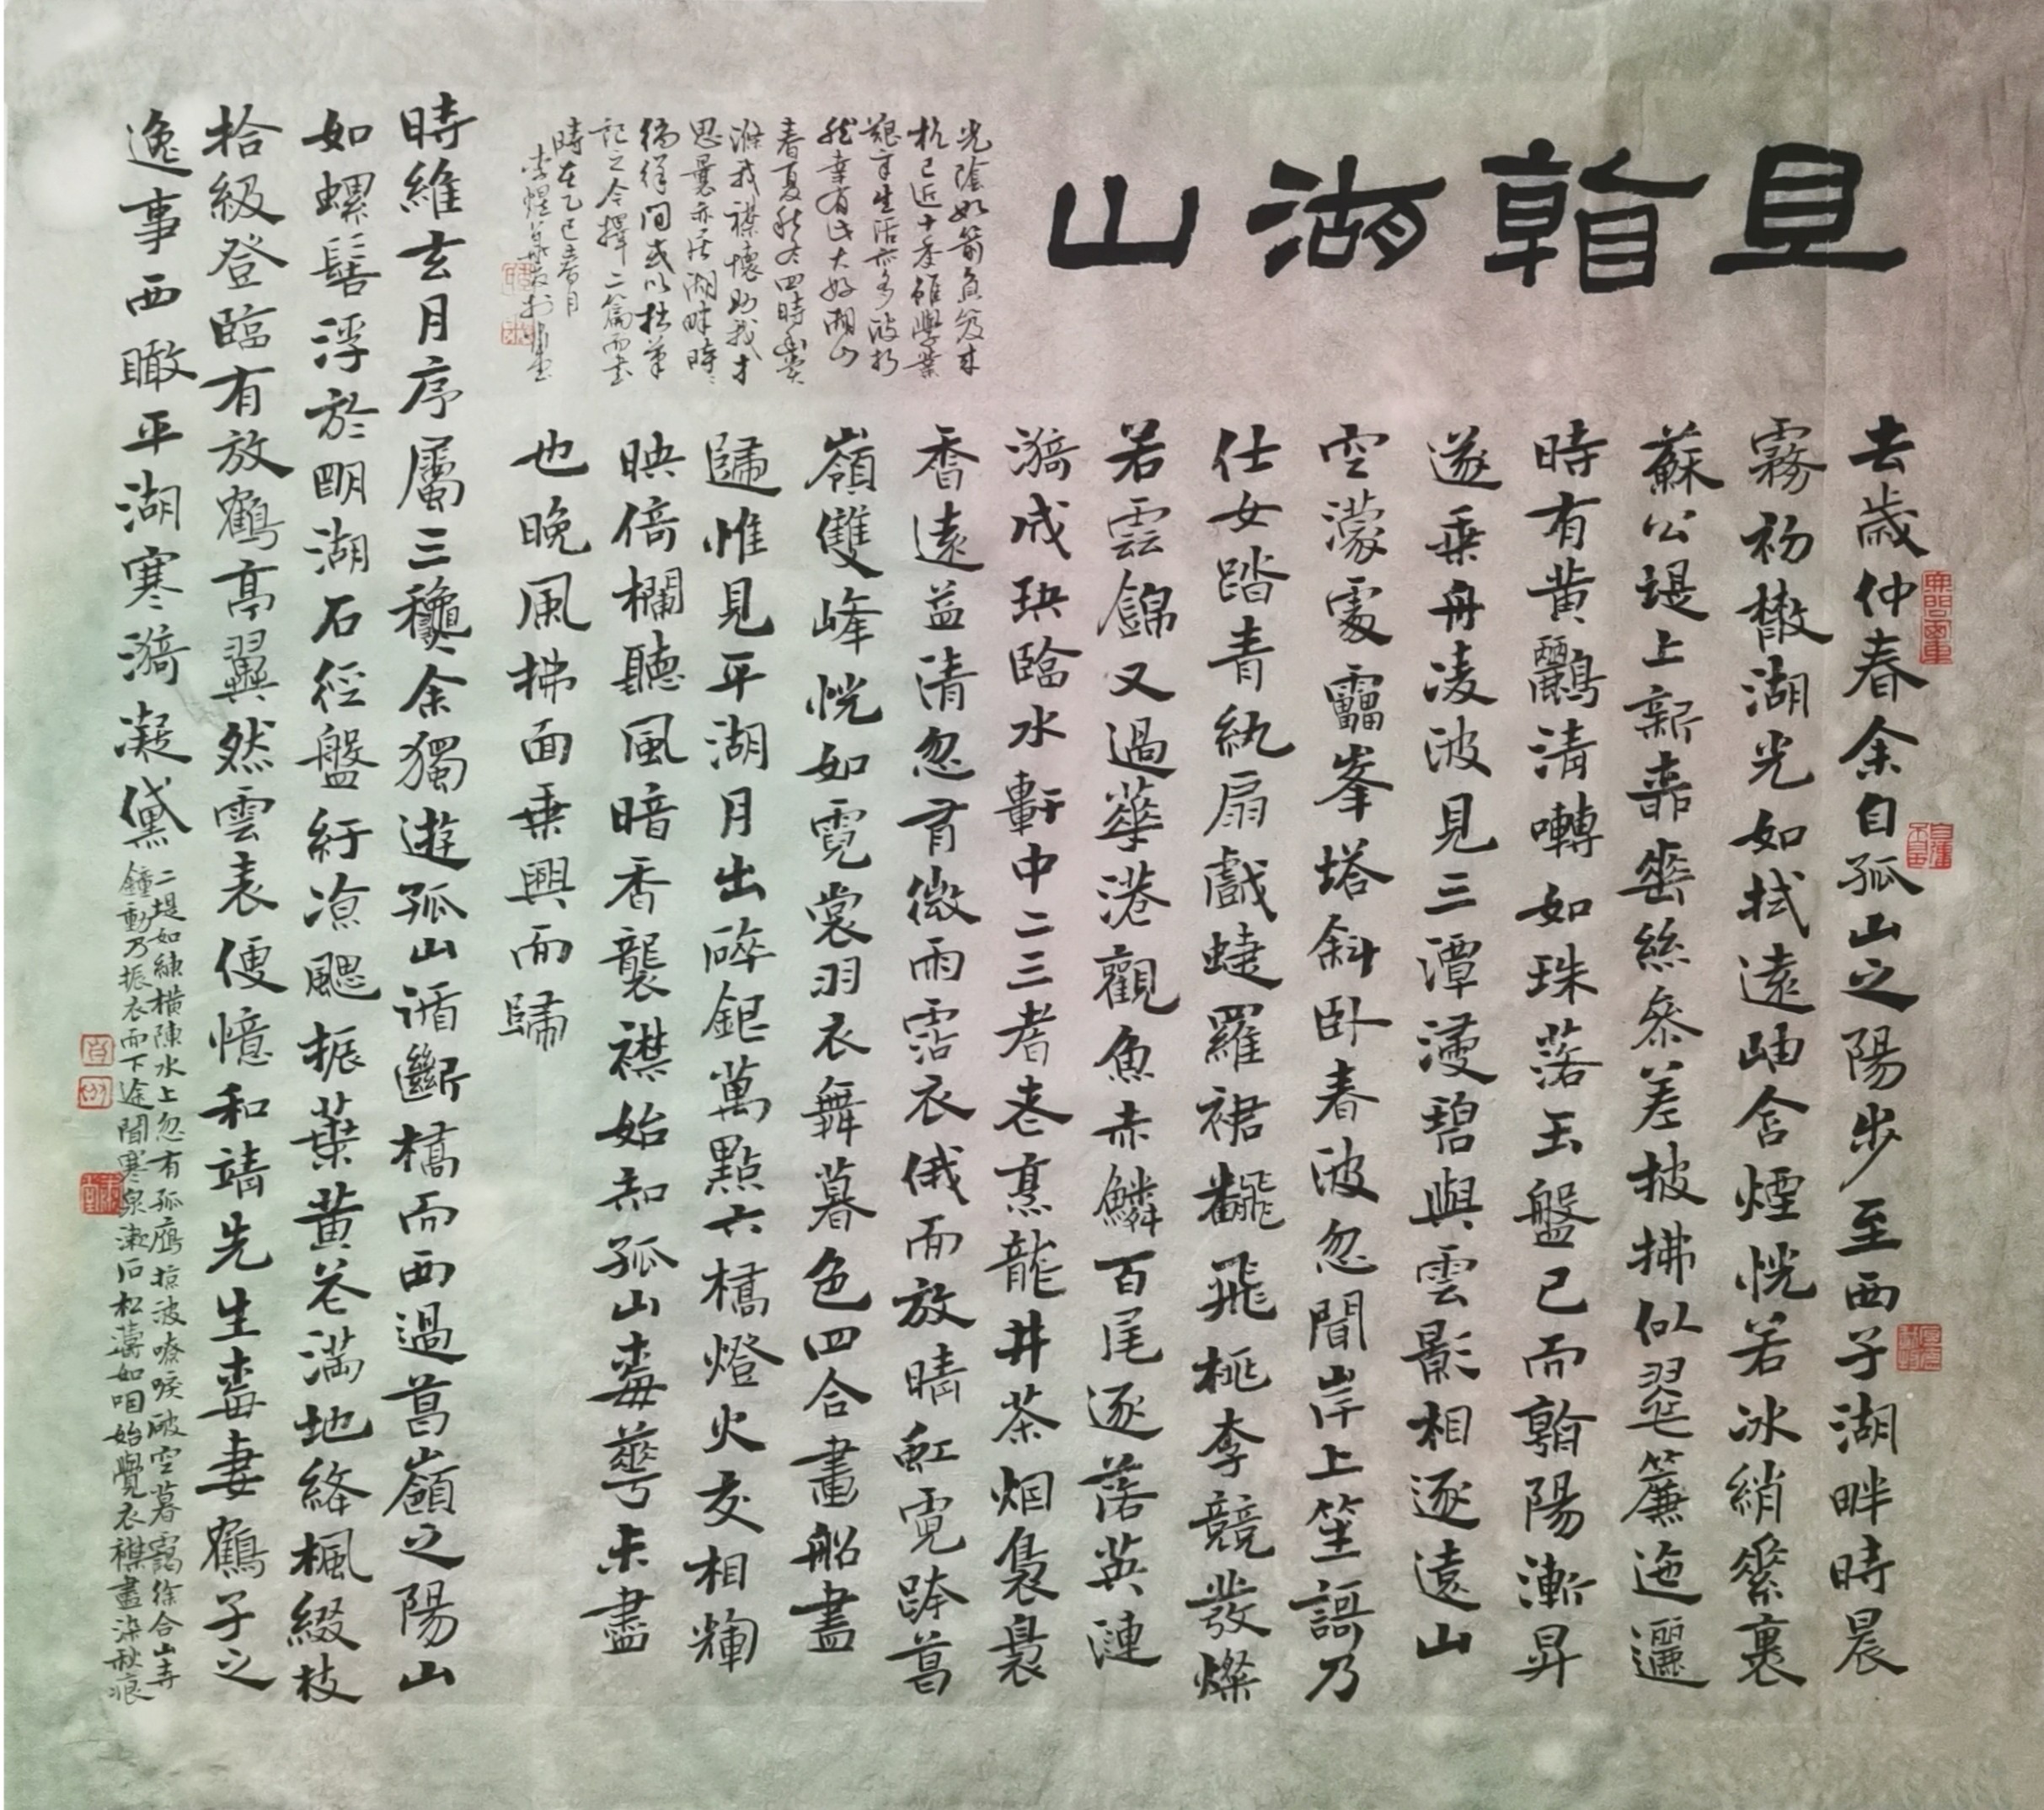 且翰湖山
去歲仲春余自孤山之陽步至西子湖畔時晨
霧初散湖光如拭遠岫含煙恍若冰綃縈裹
蘇公堤上新垂絲參差披拂似翠簾迤邐
時有黄鸝清囀如珠落玉盤已而朝陽漸昇
遂乗舟凌波見三潭漾碧與雲影相逐遠山
空濛處雷峯塔斜卧春波忽聞岸上笙謌乃
仕女踏青紈扇戲蜨羅裙翻飛桃李競發燦
若雲錦又過華港觀魚赤鱗百尾逐落英漣
漪成玦臨水軒中二三耆老烹龍井茶烟裊裊
香遠益清忽有微雨霑衣俄而放晴虹霓跨葛
嶺雙峰恍如霓裳羽衣舞暮色四合畫船盡
歸惟見平湖月出碎銀萬點六橋燈火交相輝
映倚欄聽風暗香襲襟始知孤山梅萼未盡
也晚風拂面乗興而歸
光陰如箭負笈來
杭已近十季雖學業
艱辛生活亦多波折
然幸有此大好湖山
春夏秋冬四時
滌我襟懷助我才
思曩亦居湖畔時時
徜徉間或以拙筆
記之今擇二篇而書
時在乙巳春月
時維玄月序屬三穐余獨遊孤山循斷橋而西過葛嶺之陽山
如螺髻浮於明湖石徑盤紆涼颸振葉黄花滿地絳楓綴枝
拾級登臨有放鶴亭翼然雲表便憶和靖先生梅妻鶴子之
逸事西瞰平湖寒漪凝黛
二堤如練橫陳水上忽有孤鴈掠波嘹唳破空暮靄徐合山寺
鐘動乃振衣而下途聞寒泉漱石松濤如咽始覺衣襟盡染秋痕